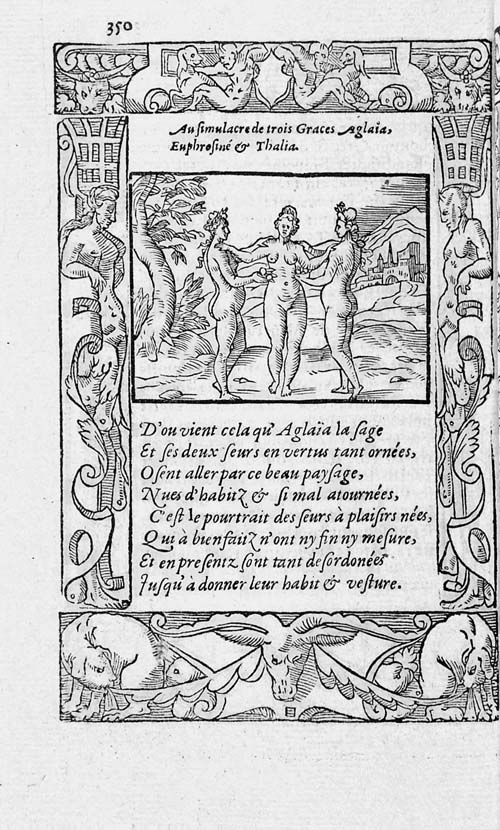 350
Au simulacre de trois Graces Aglaïa,
Euphrosiné & Thalia.
D'ou vient cela qu' Aglaïa la sage
Et ses deux seurs en vertus tant ornées,
Osent aller par ce beau paysage,
Nues d'habitz & si mal atournées,
C'est le pourtrait des seurs à plaisirs nées,
Qui à bienfaitz n'ont ny fin ny mesure,
Et en presentz sont tant desordonées
Jusqu'à donner leur habit & vesture.